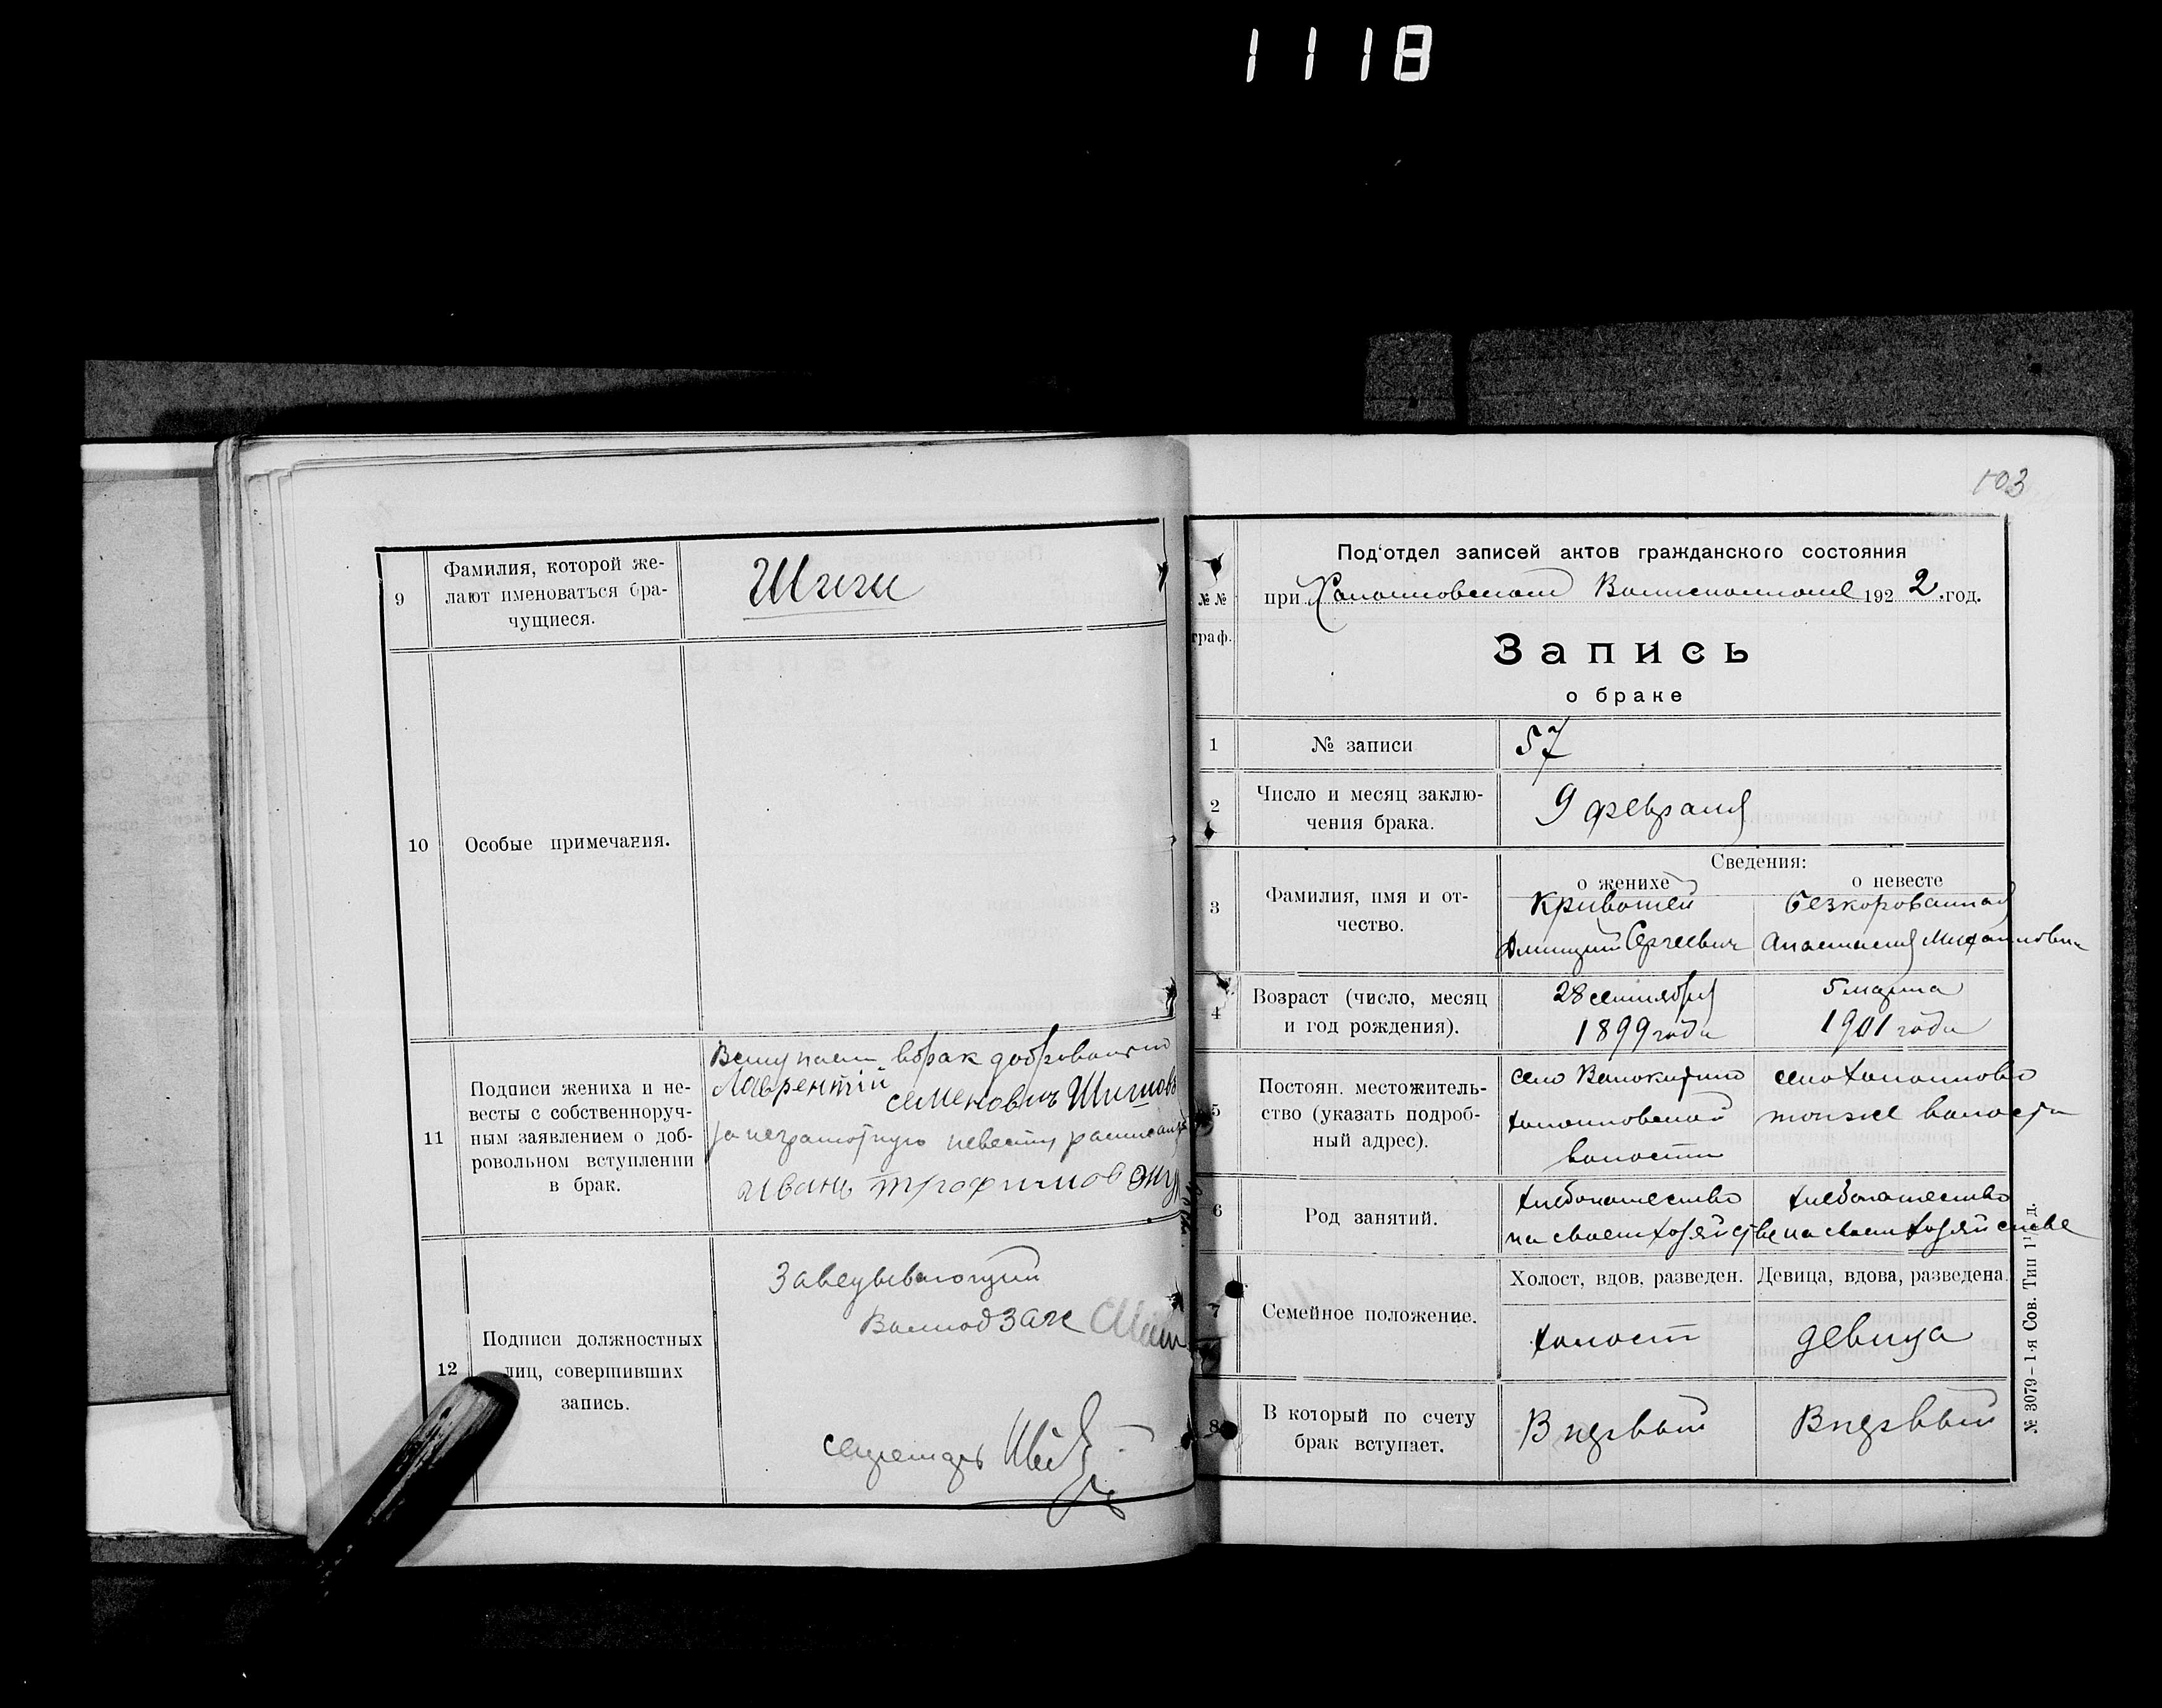 1118
9
Фамилия, которой же-
лают именоваться бра-
чущиеся.
10
Особые примечания.
11
Подписи жениха и не-
весты с собственноруч-
ным заявлением о доб-
ровольном вступлении
в брак.
Вступаем в брак добровольно
Лаврентій
семеновичъ
за неграмотную невесту
Иванъ трофимов
12
Подписи должностных
лиц, совершивших
запись.
Заведывающий
секретарь
103
№№
граф.
Под'отдел записей актов гражданского состояния
при Волисполкоме 1922.год.
Запись
о браке
1
№ записи
57
2
Число и месяц заклю-
чения брака.
9 февраля
Сведения:
о женихе
о невесте
3
Фамилия, имя и от-
чество.
Кривошей
Дмитрий Сергеевич
Безкоровайная
Анастасия Михайловна
4
Возраст (число, месяц
и год рождения).
28 сентября
1899 года
5 марта
1901 года
5
Постоян. местожитель-
ство (указать подроб-
ный адрес).
село
волости
село
тойже волости
6
Род занятий.
хлебопашество
на своем хозяйстве
хлебопашество
на своем хозяйстве
7
Семейное положение.
Холост, вдов, разведен.
Девица, вдова, разведена.
холост
девица
8
В который по счету
брак вступает.
В первый
В первый
№ 3079–1-я Сов. Тип